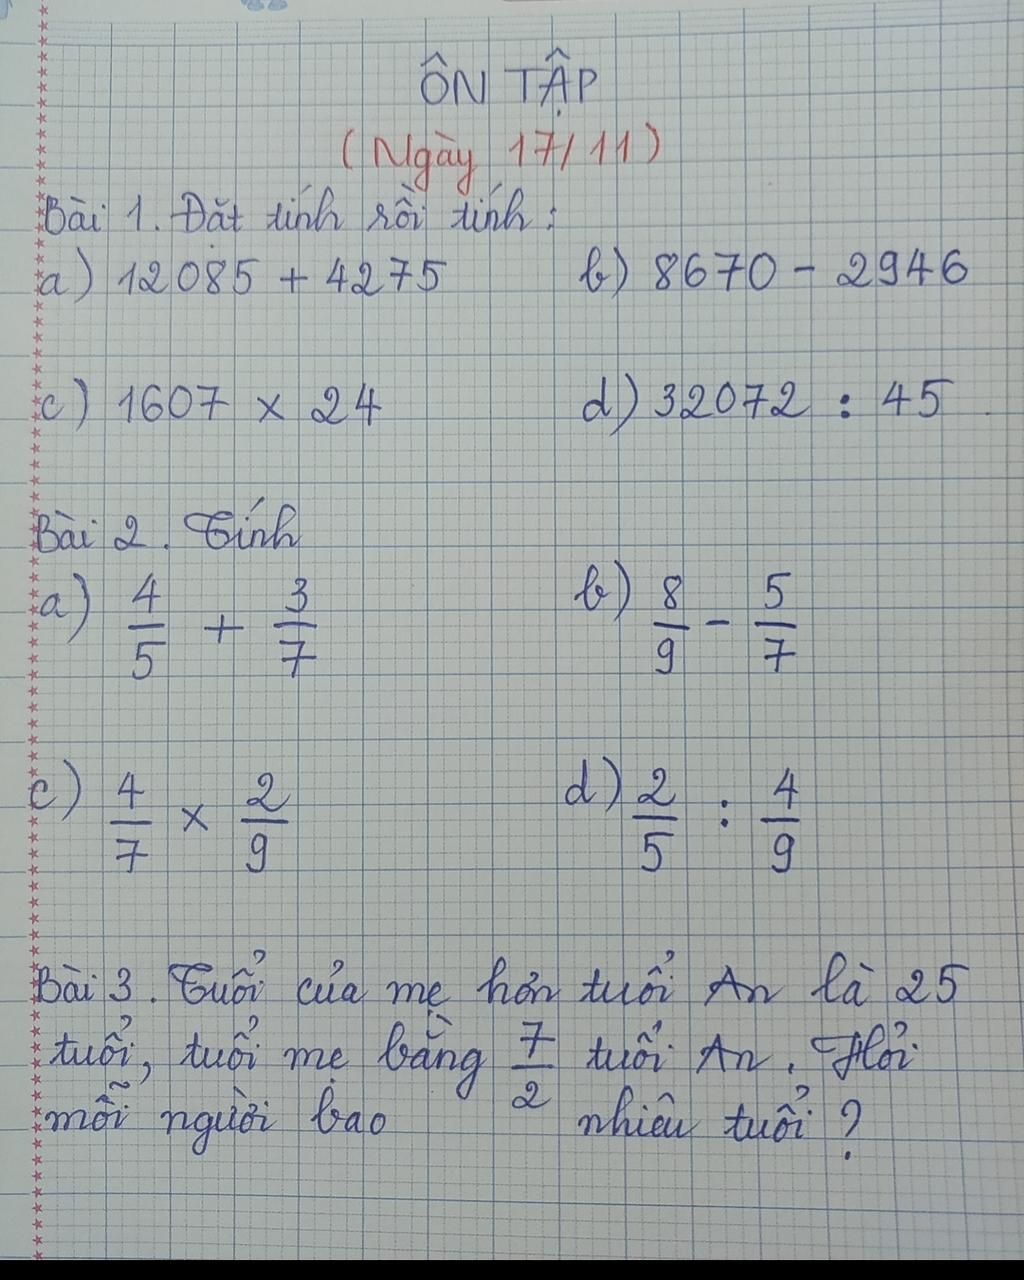 ÔN TẬP
(Ngày 17/11)
Bài 1. Đặt tính rồi tính:
a) 12085 + 4275 b) 8670 - 2946
c) 1607 x 24 d) 32072 : 45
Bài 2. Tính
a) 4/5 + 3/7 b) 8/9 - 5/7
c) 4/7 x 2/9 d) 2/5 : 4/9
Bài 3. Tuổi của mẹ hơn tuổi An là 25
tuổi, tuổi mẹ bằng 7/2 tuổi An. Hỏi
mỗi người bao nhiêu tuổi?